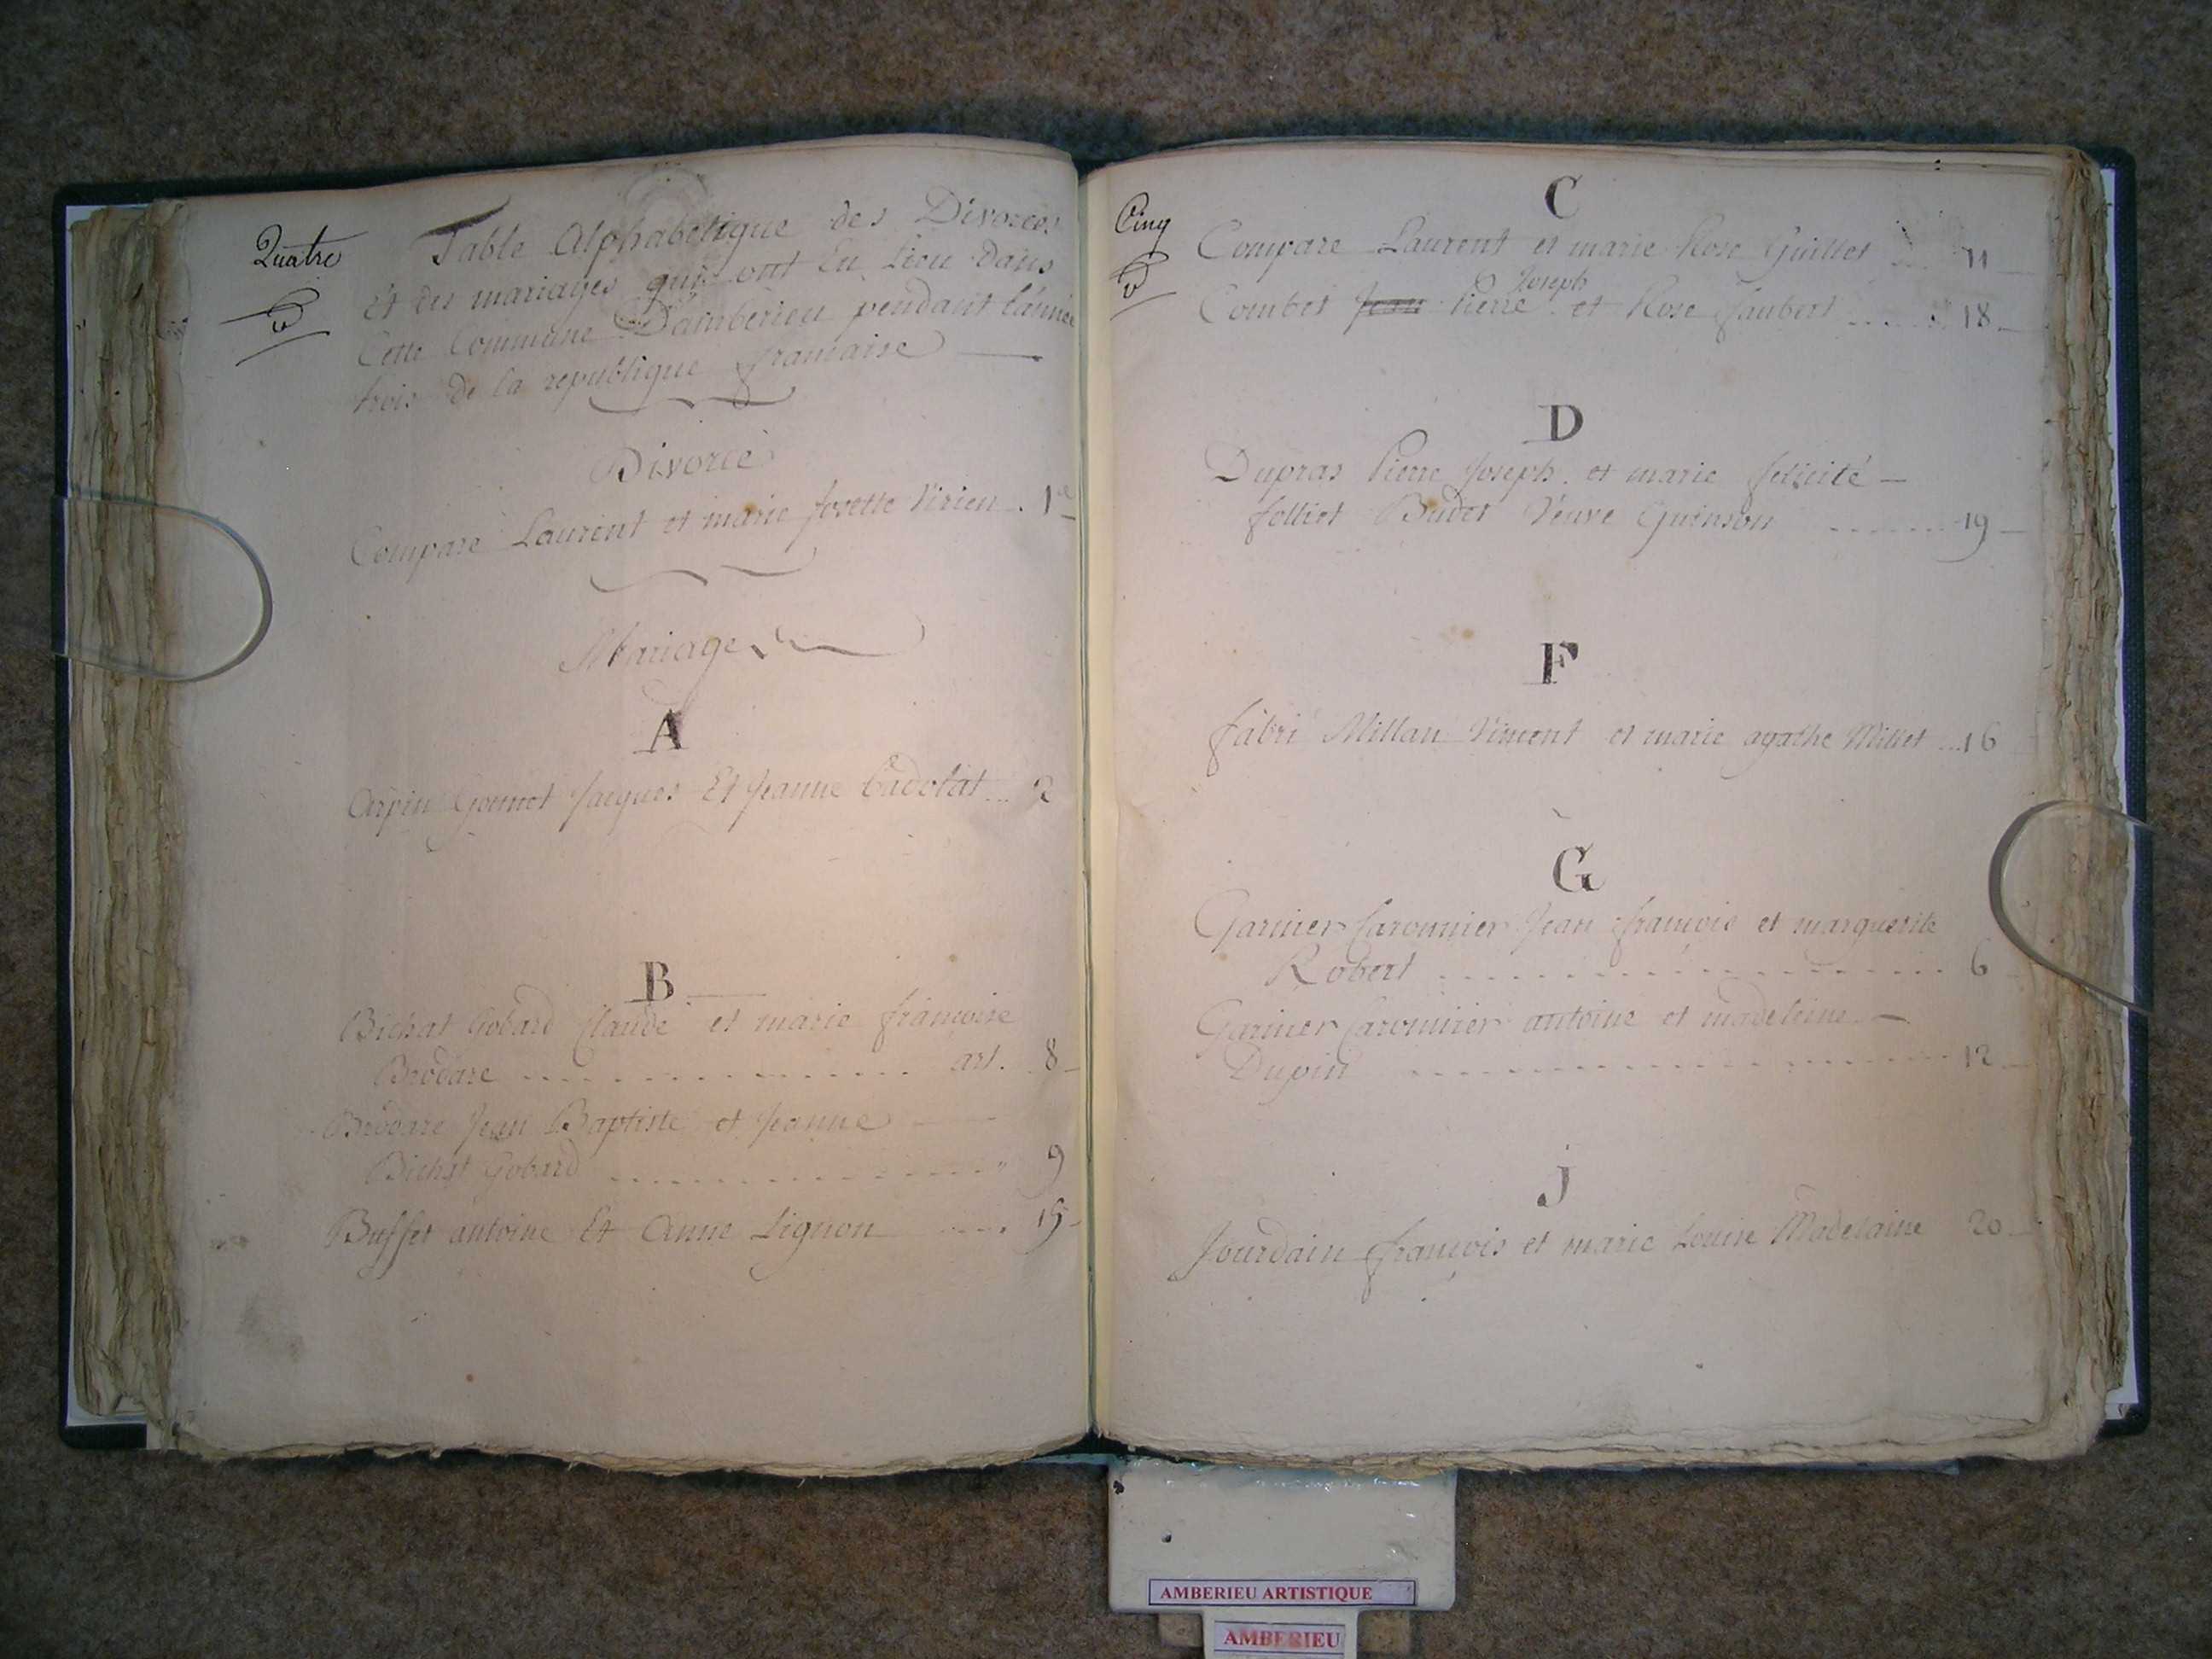 Quatre
Table Alphabetique des Divorces
Et des mariages qui ont Eu Lieu dans
Cette Commune D'amberieu pendant l'année
trois de la republique francaise
Divorce
Compare Laurent et marie Josette Virieu . 1e
Mariages
A
Arpin Gonnet Jacques Et Jeanne Cadolat ... 2
B
Bichat Gobard Claude et marie francoise
Brodare art. 8
Brodare Jean Baptiste et Jeanne
Bichat Gobard 9
Buffet antoine Et Anne Lignon 15
Cinq
C
Compare Laurent et marie Rose Guillet 11
Joseph
Combet Jean Pierre et Rose Jaubert 18
D
Dupras Pierre Joseph et marie felicité
folliet Budet Veuve Guinson 19
F
fabri Millan Vincent et marie agathe Millet 16
G
Garnier Caronnier Jean francois et marguerite
Robert 6
Garnier Caronnier antoine et madeleine
Dupin 12
J
Jourdain francois et marie Louise Madelaine 20
AMBERIEU ARTISTIQUE
AMBERIEU